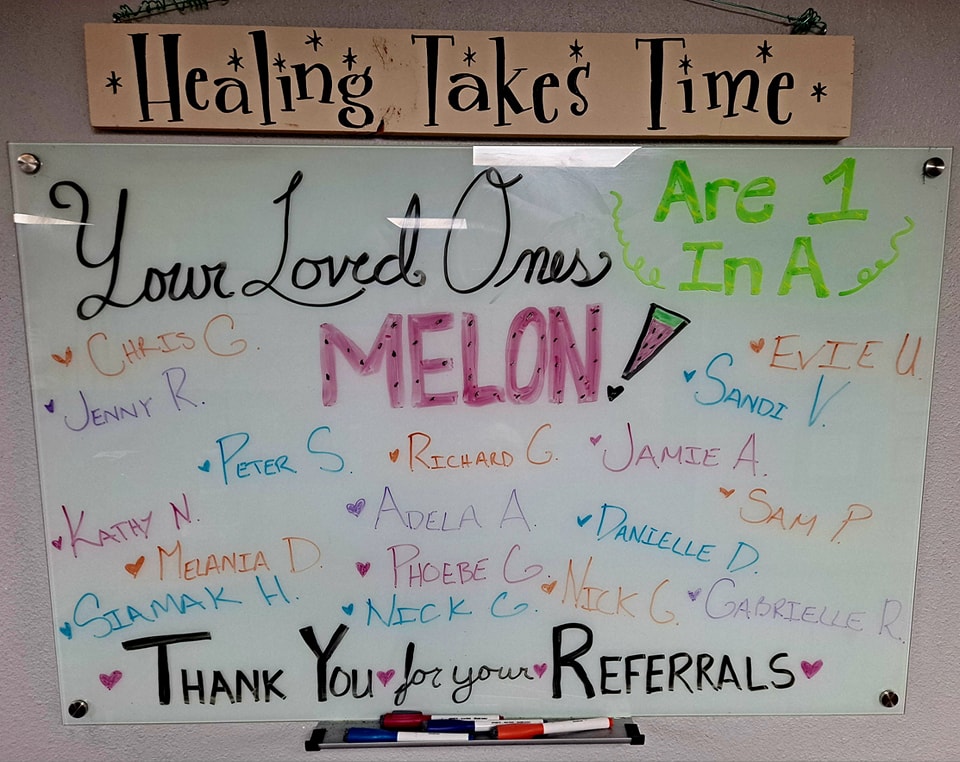 Healing Takes Time
Your Loved Ones
Are 1
In A
MELON!
CHRIS G.
EVIE U.
JENNY R.
SANDI V.
PETER S.
RICHARD G.
JAMIE A.
KATHY N.
ADELA A.
SAM P.
DANIELLE D.
MELANIA D.
PHOEBE G.
SIAMAK H.
NICK G.
NICK G.
GABRIELLE R.
THANK YOU for your REFERRALS